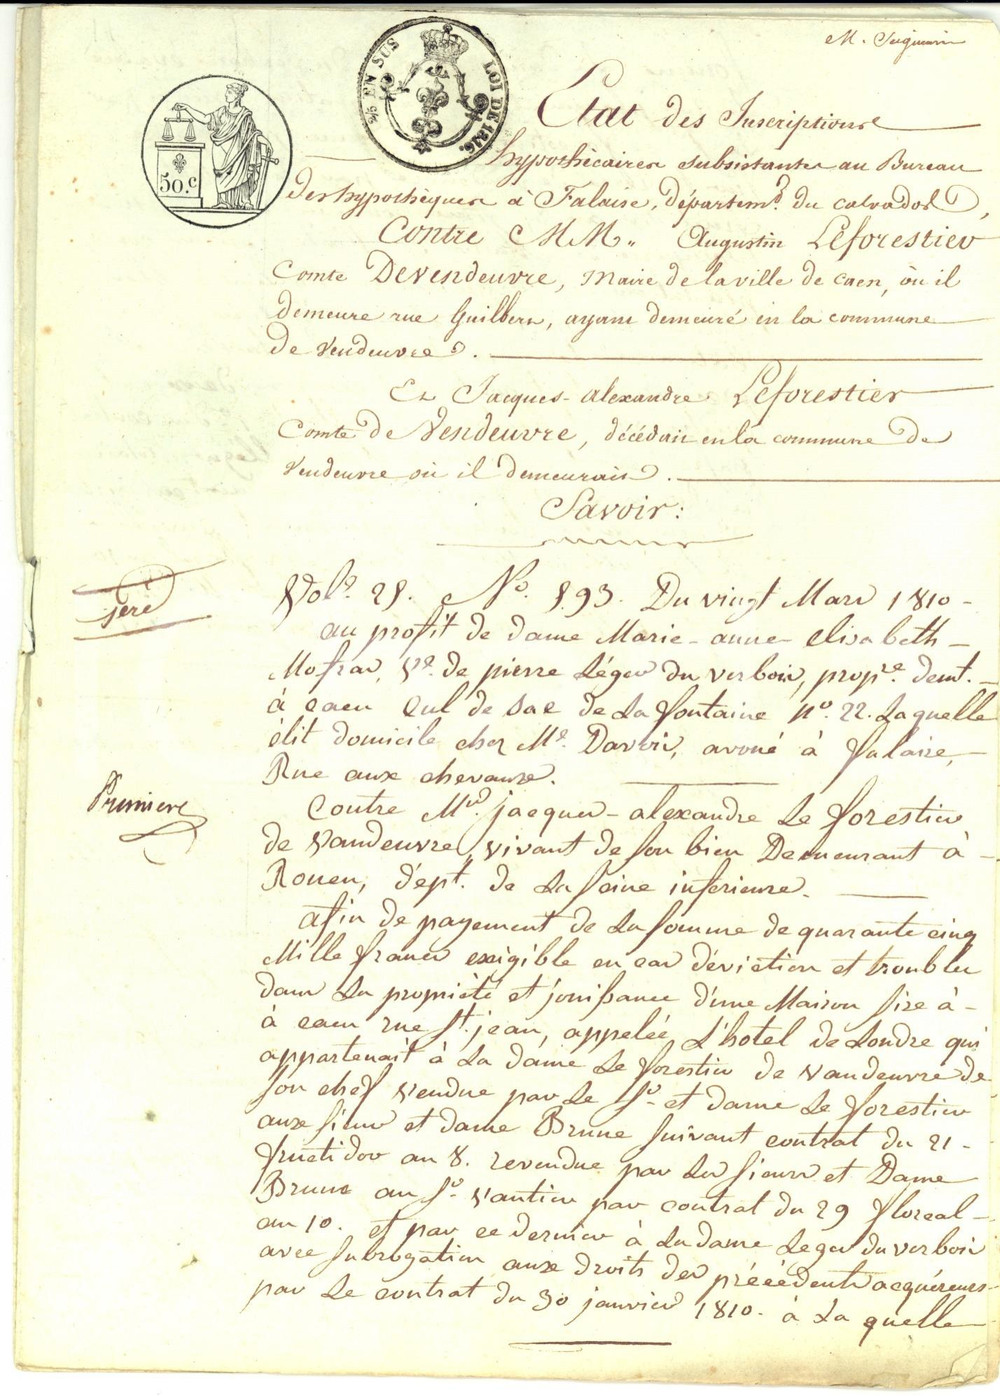 M. Seigneurie
EN SUS
LOI DE 1816.
50.c
Etat des Inscriptions
hypothécaires subsistantes au Bureau
des hypothèques à Falaise, départemt. du calvados,
Contre MM. Augustin Leforestier
Comte DeVendeuvre, Maire de la ville de Caen, où il
demeure rue Guilbert, ayant demeuré en la commune
de Vendeuvre.
Et Jacques-alexandre Leforestier
Comte de Vendeuvre, décédait en la commune de
Vendeuvre où il demeurait.
Savoir:
1ere
Vol. 25. No. 893. Du vingt Mars 1810-
au profit de dame Marie-anne-elisabeth-
Mofras, Ve. de pierre Léger du verbois, propre. demt.-
à caen Cul de sac de la fontaine no. 22. laquelle
élit domicile chez Me. Davoir, avoué à falaise,-
Rue aux chevaux.
Premiere
Contre Mr. jacques-alexandre Le forestier
de Vandeuvre, vivant de son bien Demeurant à-
Rouen, dépt. de la Seine inferieure.
afin de payement de la somme de quarante cinq
Mille francs exigible en cas d'éviction et troubles
dans la propriété et jouissance d'une Maison size à-
à caen rue St. jean, appelée L'hotel de Londre qui
appartenait à la dame Le forestier de Vandeuvre de
son chef vendue par le Sr. et dame Le forestier
aux sieur et dame Brune suivant contrat du 21-
fructidor an 8. revendue par les sieurs et Dame
Brune au Sr. Vautier par contrat du 29 floreal-
an 10. et par ce dernier à la dame Leger du verbois
avec subrogation aux droits des précédents acquéreurs-
par le contrat du 30 janvier 1810. à la quelle